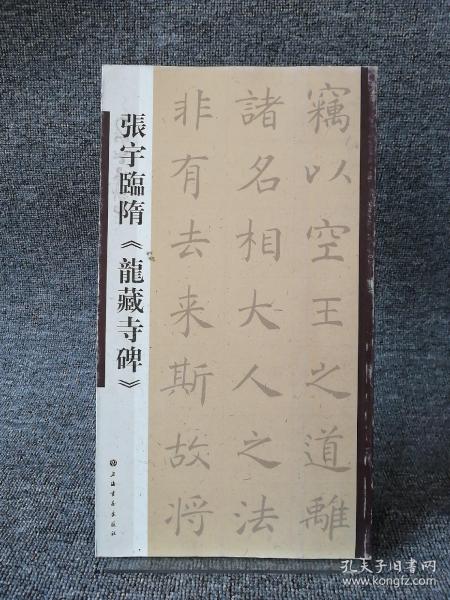 張宇臨隋《龍藏寺碑》
上海書店出版社
竊以空王之道離
諸名相大人之法
非有去来斯故将
孔夫子旧书网
www.kongfz.com